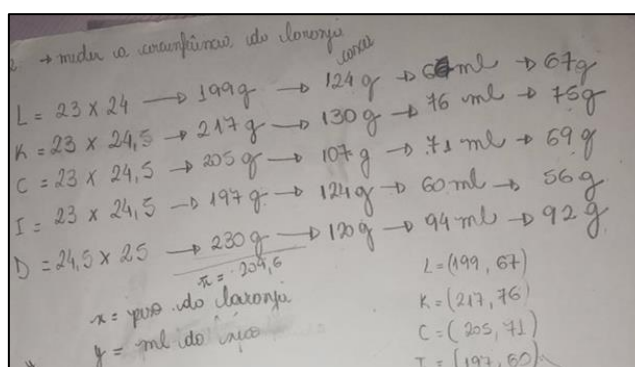 → medir a circunferência da laranja
casca
L = 23 x 24 → 199g → 124g → 67ml → 67g
K = 23 x 24,5 → 217g → 130g → 76 ml → 75g
C = 23 x 24,5 → 205g → 107g → 71 ml → 69g
I = 23 x 24,5 → 197g → 124g → 60 ml → 56g
D = 24,5 x 25 → 230g → 120g → 94 ml → 92g
x = 209,6
x = peso da laranja
y = ml do suco
L = (199, 67)
K = (217, 76)
C = (205, 71)
I = (197, 60)